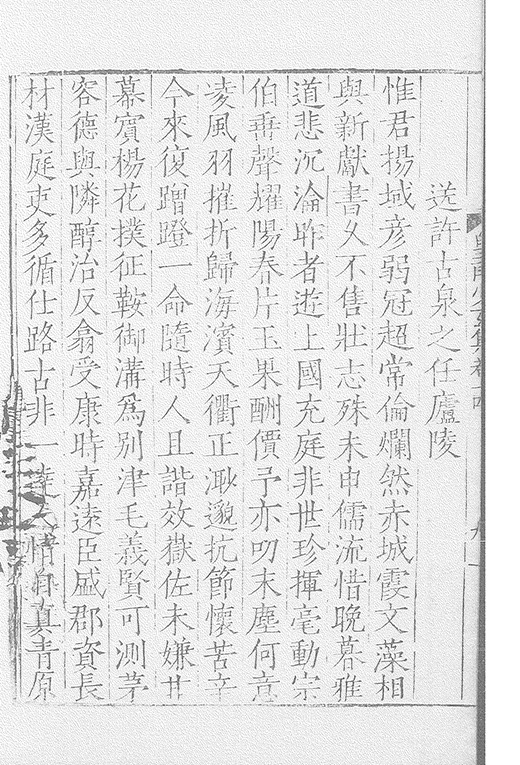 送許古泉之任廬陵
惟君揚域彦弱冠超常倫爛然赤城霞文藻相
與新獻書久不售壯志殊未申儒流惜晚暮雅
道悲沉淪昨者遊上國充庭非世珍揮毫動宗
伯垂聲耀陽春片玉果酬價予亦叨末塵何意
凌風羽摧折歸海濱天衢正渺邈抗節懷苦辛
今來復蹭蹬一命隨時人且諧效嶽佐未嫌廿
幕賓楊花撲征鞍御溝爲別津毛義賢可測茅
容德與隣醇治反翕受康時嘉遠臣盛郡資長
材漢庭吏多循仕路古非一達人情自真青原